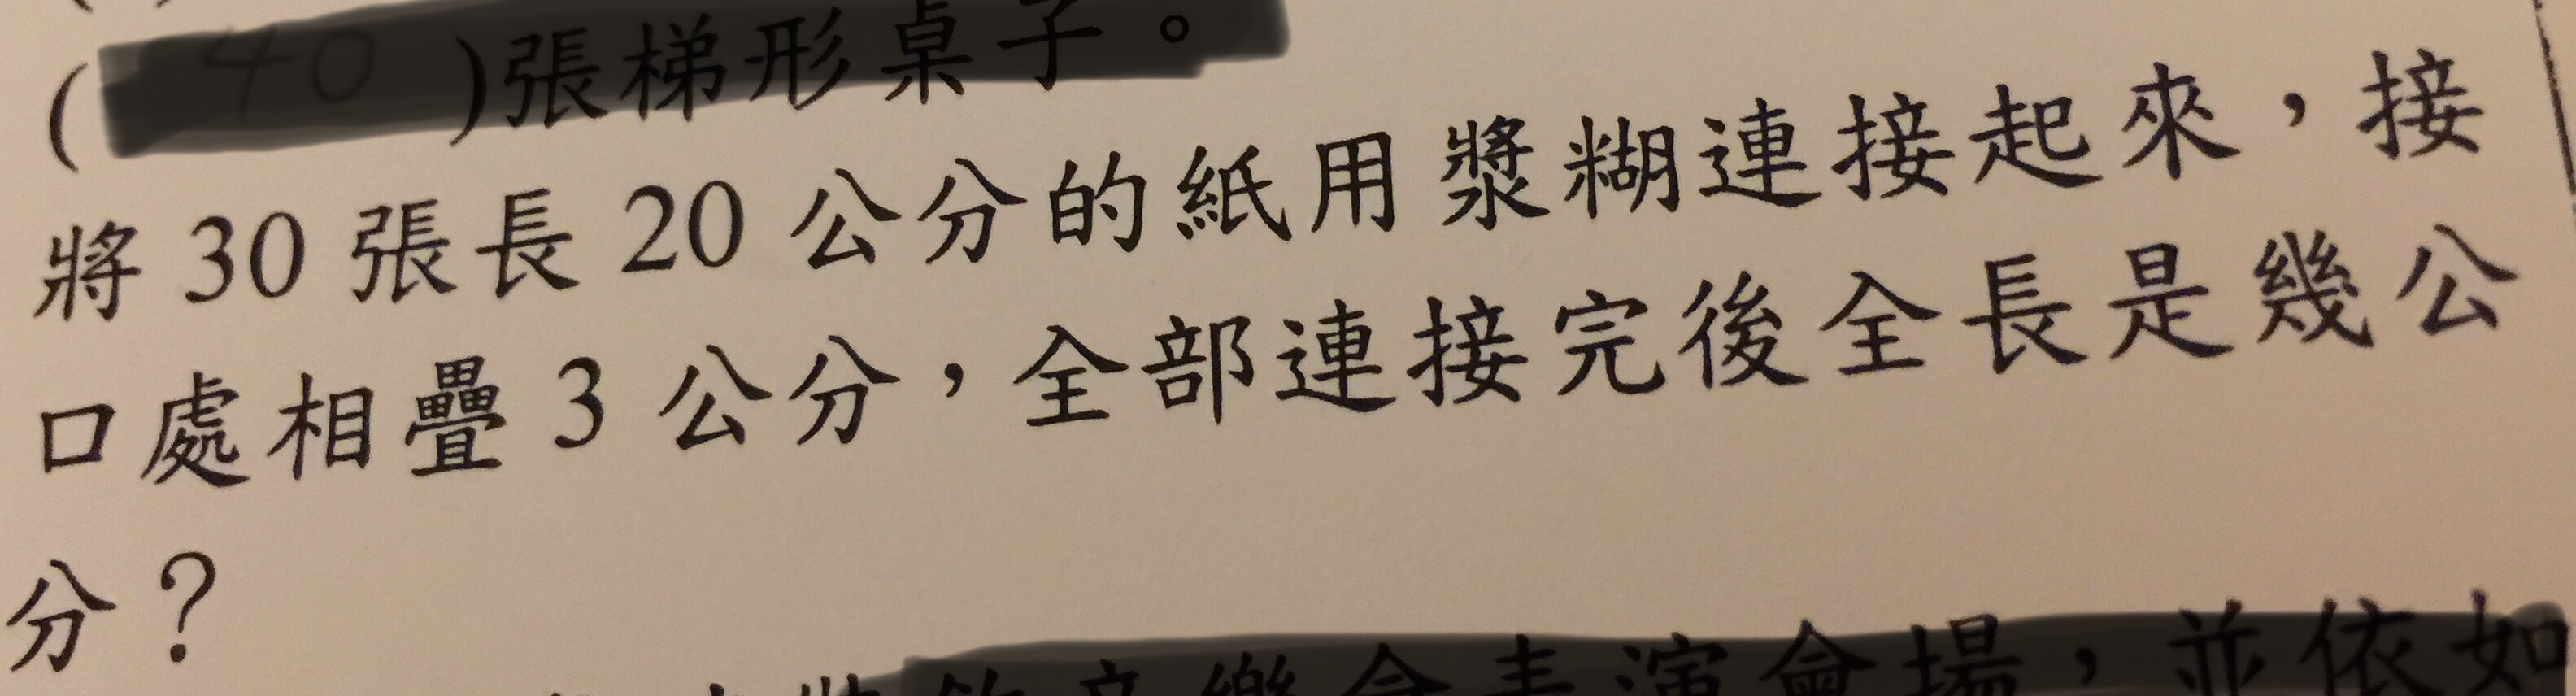 ( 40 )張梯形桌子。
將 30 張長 20 公分的紙用漿糊連接起來，接
口處相疊 3 公分，全部連接完後全長是幾公
分？
音樂會表演會場，並依如